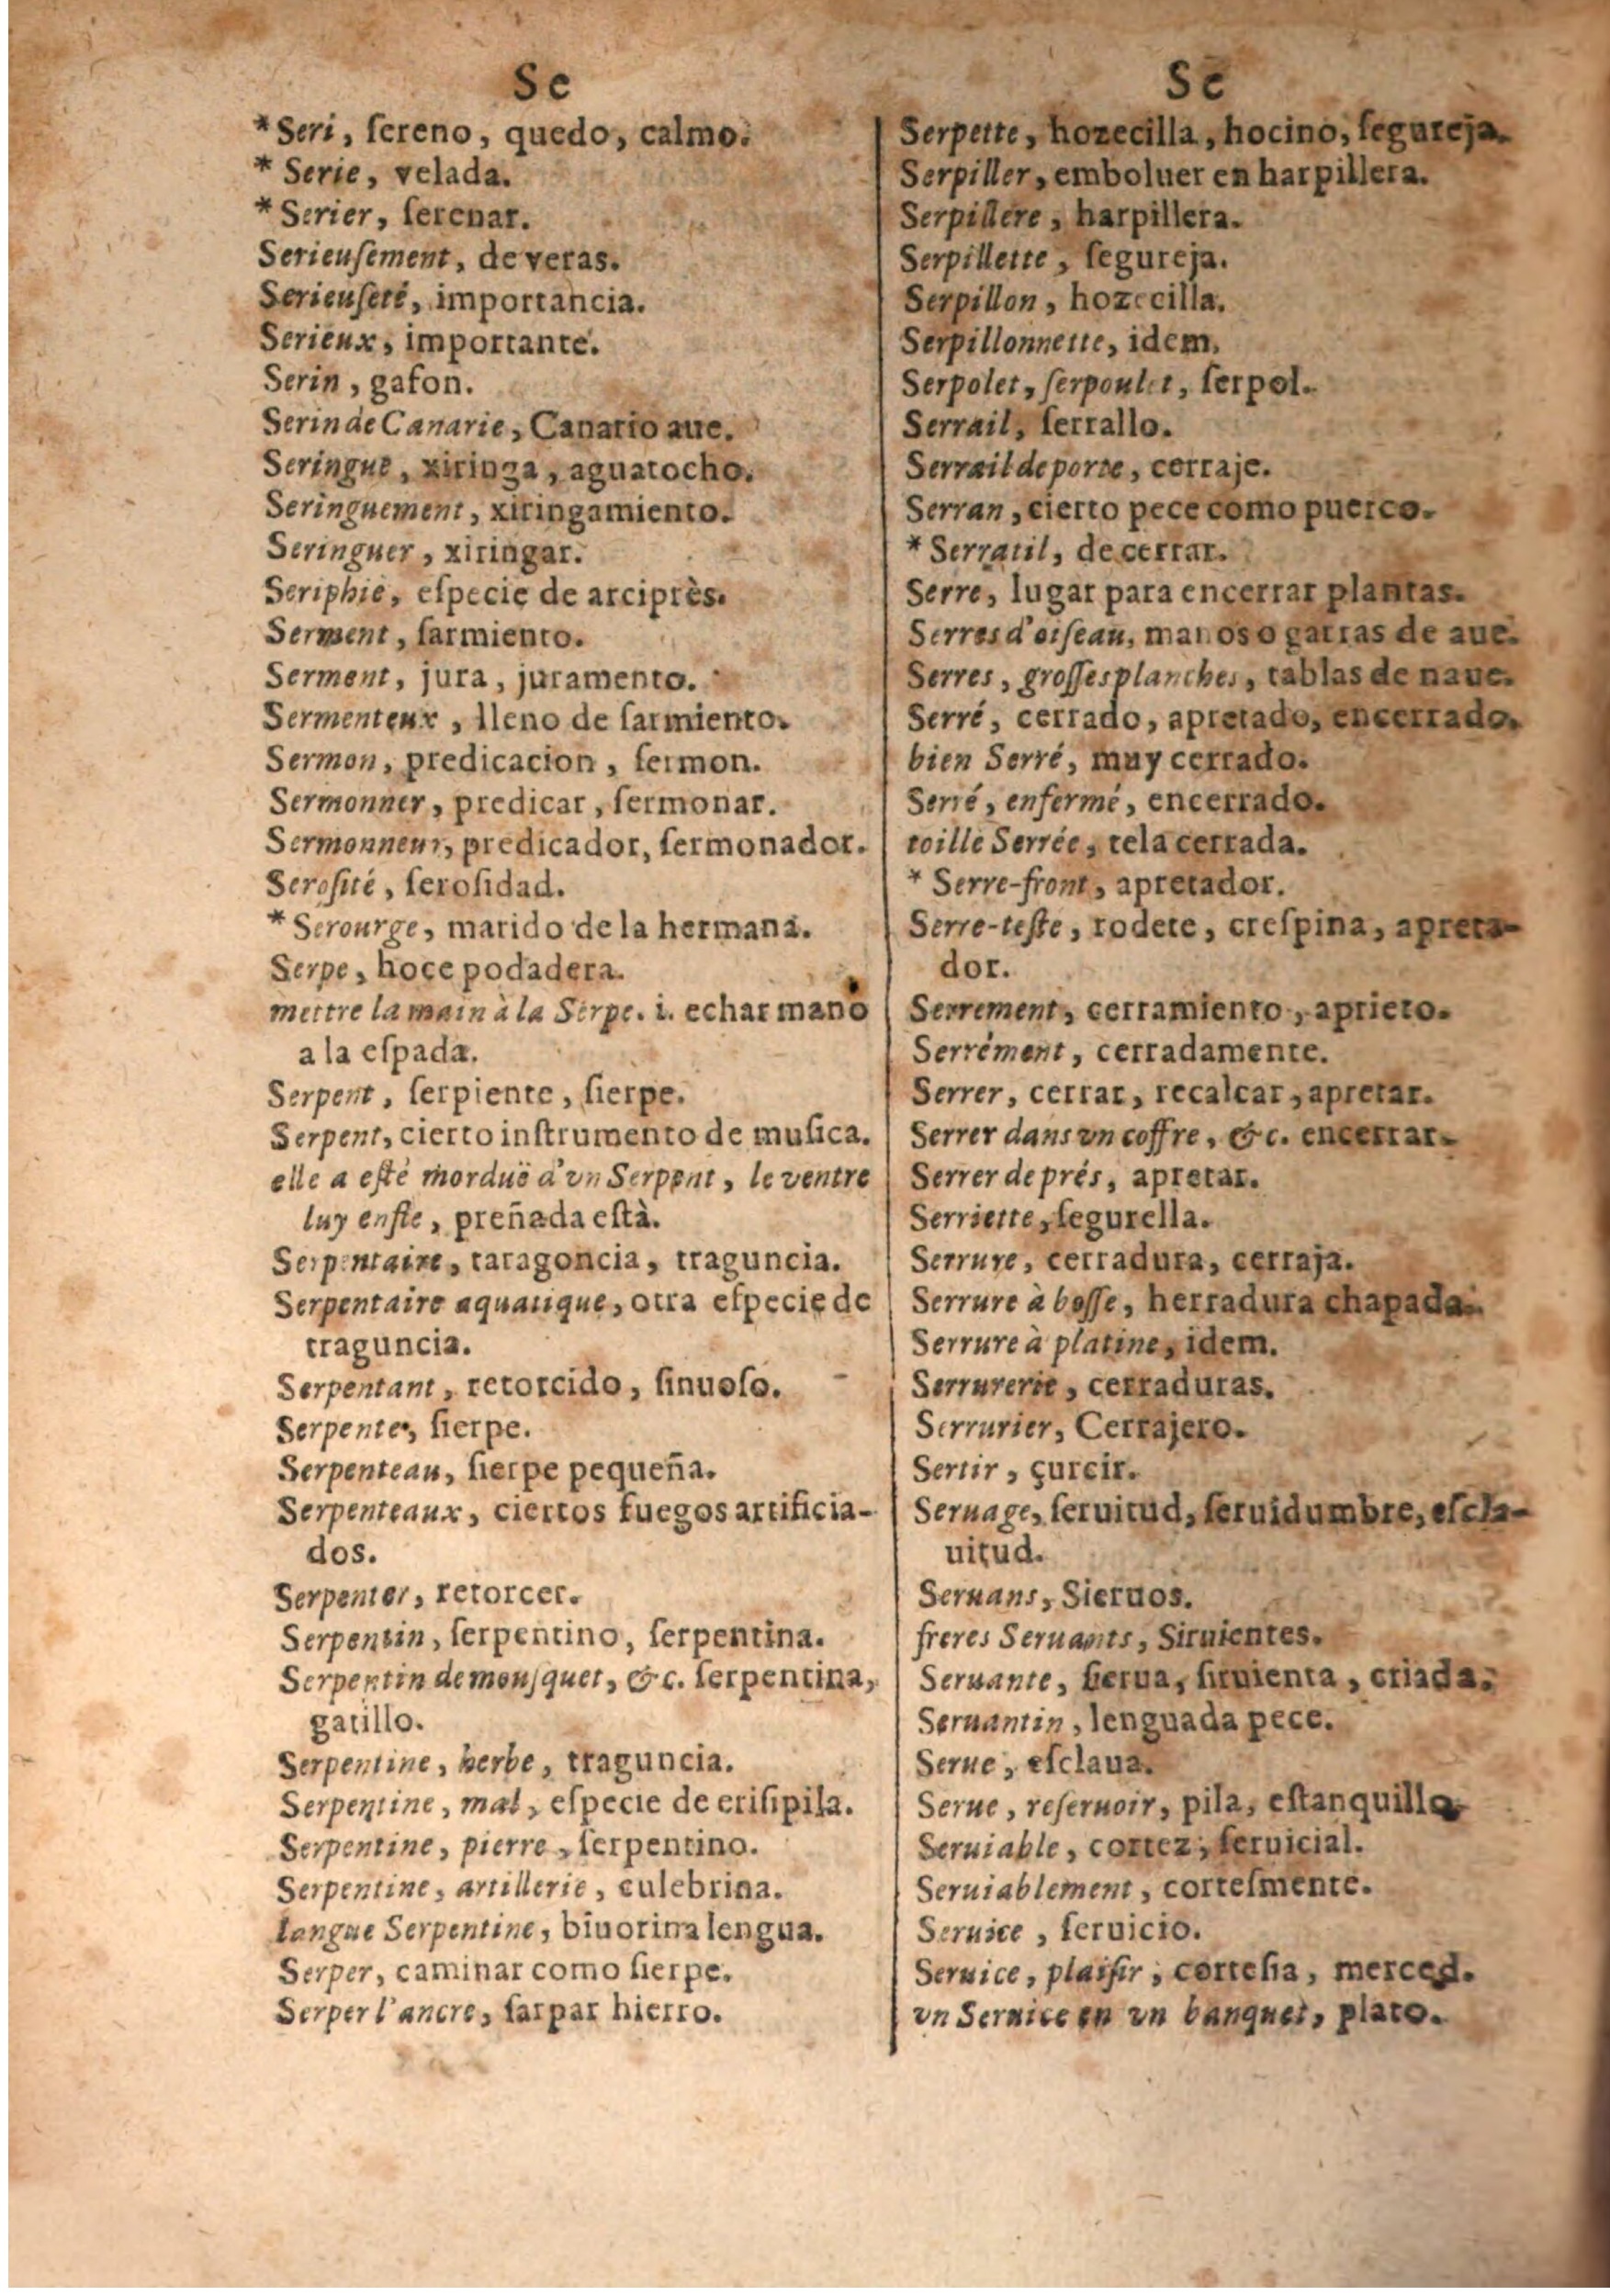 Se
*Seri, ſereno, quedo, calmo.
* Serie, velada.
*Serier, ſerenar.
Serieuſement, de veras.
Serieuſeté, importancia.
Serieux, importante.
Serin, gafon.
Serin de Canarie, Canario aue.
Seringue, xiringa, aguatocho.
Seringuement, xiringamiento.
Seringuer, xiringar.
Seriphie, eſpecie de arciprès.
Serment, ſarmiento.
Serment, jura, juramento.
Sermenteux, lleno de ſarmiento.
Sermon, predicacion, ſermon.
Sermonner, predicar, ſermonar.
Sermonneur, predicador, ſermonador.
Seroſité, ſeroſidad.
*Serourge, marido de la hermana.
Serpe, hoce podadera.
mettre la main à la Serpe. i. echar mano
a la eſpada.
Serpent, ſerpiente, ſierpe.
Serpent, cierto inſtrumento de muſica.
elle a eſté morduë d'vn Serpent, le ventre
luy enfle, preñada eſtà.
Serpentaire, taragoncia, traguncia.
Serpentaire aquatique, otra eſpecie de
traguncia.
Serpentant, retorcido, ſinuoſo.
Serpente, ſierpe.
Serpenteau, ſierpe pequeña.
Serpenteaux, ciertos fuegos artificia-
dos.
Serpenter, retorcer.
Serpentin, ſerpentino, ſerpentina.
Serpentin de mouſquet, &c. ſerpentina,
gatillo.
Serpentine, herbe, traguncia.
Serpentine, mal, eſpecie de eriſipila.
Serpentine, pierre, ſerpentino.
Serpentine, artillerie, culebrina.
langue Serpentine, biuorina lengua.
Serper, caminar como ſierpe.
Serper l'ancre, ſarpar hierro.
Se
Serpette, hozecilla, hocino, ſegureja.
Serpiller, emboluer en harpillera.
Serpillere, harpillera.
Serpillette, ſegureja.
Serpillon, hozecilla.
Serpillonnette, idem.
Serpolet, ſerpoulet, ſerpol.
Serrail, ſerrallo.
Serrail de porte, cerraje.
Serran, cierto pece como puerco.
* Serratil, de cerrar.
Serre, lugar para encerrar plantas.
Serres d'oiſeau, manos o garras de aue.
Serres, groſſes planches, tablas de naue.
Serré, cerrado, apretado, encerrado.
bien Serré, muy cerrado.
Serré, enfermé, encerrado.
toille Serrée, tela cerrada.
* Serre-front, apretador.
Serre-teſte, rodete, creſpina, apreta-
dor.
Serrement, cerramiento, aprieto.
Serrément, cerradamente.
Serrer, cerrar, recalcar, apretar.
Serrer dans vn coffre, &c. encerrar.
Serrer de prés, apretar.
Serriette, ſegurella.
Serrure, cerradura, cerraja.
Serrure à boſſe, herradura chapada.
Serrure à platine, idem.
Serrurerie, cerraduras.
Serrurier, Cerrajero.
Sertir, çurcir.
Seruage, ſeruitud, ſeruidumbre, eſcla-
uitud.
Seruans, Sieruos.
freres Seruants, Siruientes.
Seruante, ſierua, ſiruienta, criada.
Seruantin, lenguada pece.
Serue, eſclaua.
Serue, reſeruoir, pila, eſtanquillo.
Seruiable, cortez, ſeruicial.
Seruiablement, corteſmente.
Seruice, ſeruicio.
Seruice, plaiſir, corteſia, merced.
vn Seruice en vn banquet, plato.